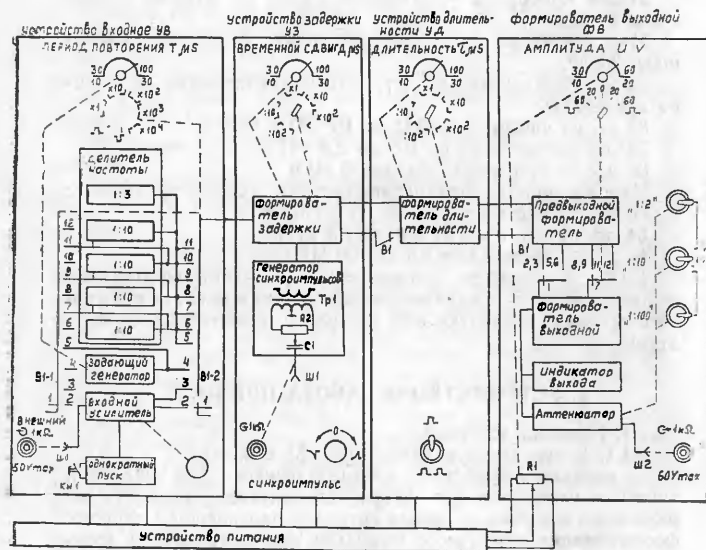 Устройство входное УВ
ПЕРИОД ПОВТОРЕНИЯ T, μS
30 100
10 30
x1 x10 x10²
x10³
x10⁴
Делитель частоты
1:3
1:10
1:10
1:10
1:10
12 11 10 9 8 7 6 5
11 10 9 8 7 6 5
Задающий генератор
4 4
В1-1
В1-2
3 3
2 2
1 1
Входной усилитель
Внешний
1кΩ
50Vmax
Ш0
Кн1
Однократный пуск
Устройство задержки
УЗ
ВРЕМЕННОЙ СДВИГ Д, μS
30 100
10 30
x1 x10
x10²
:10²
Формирователь задержки
Генератор синхроимпульсов
Тр1
R2
C1
Ш1
G-1кΩ
0
синхроимпульс
Устройство длительности УД
ДЛИТЕЛЬНОСТЬ τ, μS
30 100
10 30
x1 x10
x10²
:10²
Формирователь длительности
В1
Формирователь выходной
ФВ
АМПЛИТУДА U V
30 60
10 20
20 0 20
60 60
Предвыходной формирователь
В1
2,3 5,6 8,9 11,12
Формирователь выходной
Индикатор выхода
Аттенюатор
"1:2"
"1:10"
"1:100"
R1
Ш2
G-1кΩ
60Vmax
Устройство питания